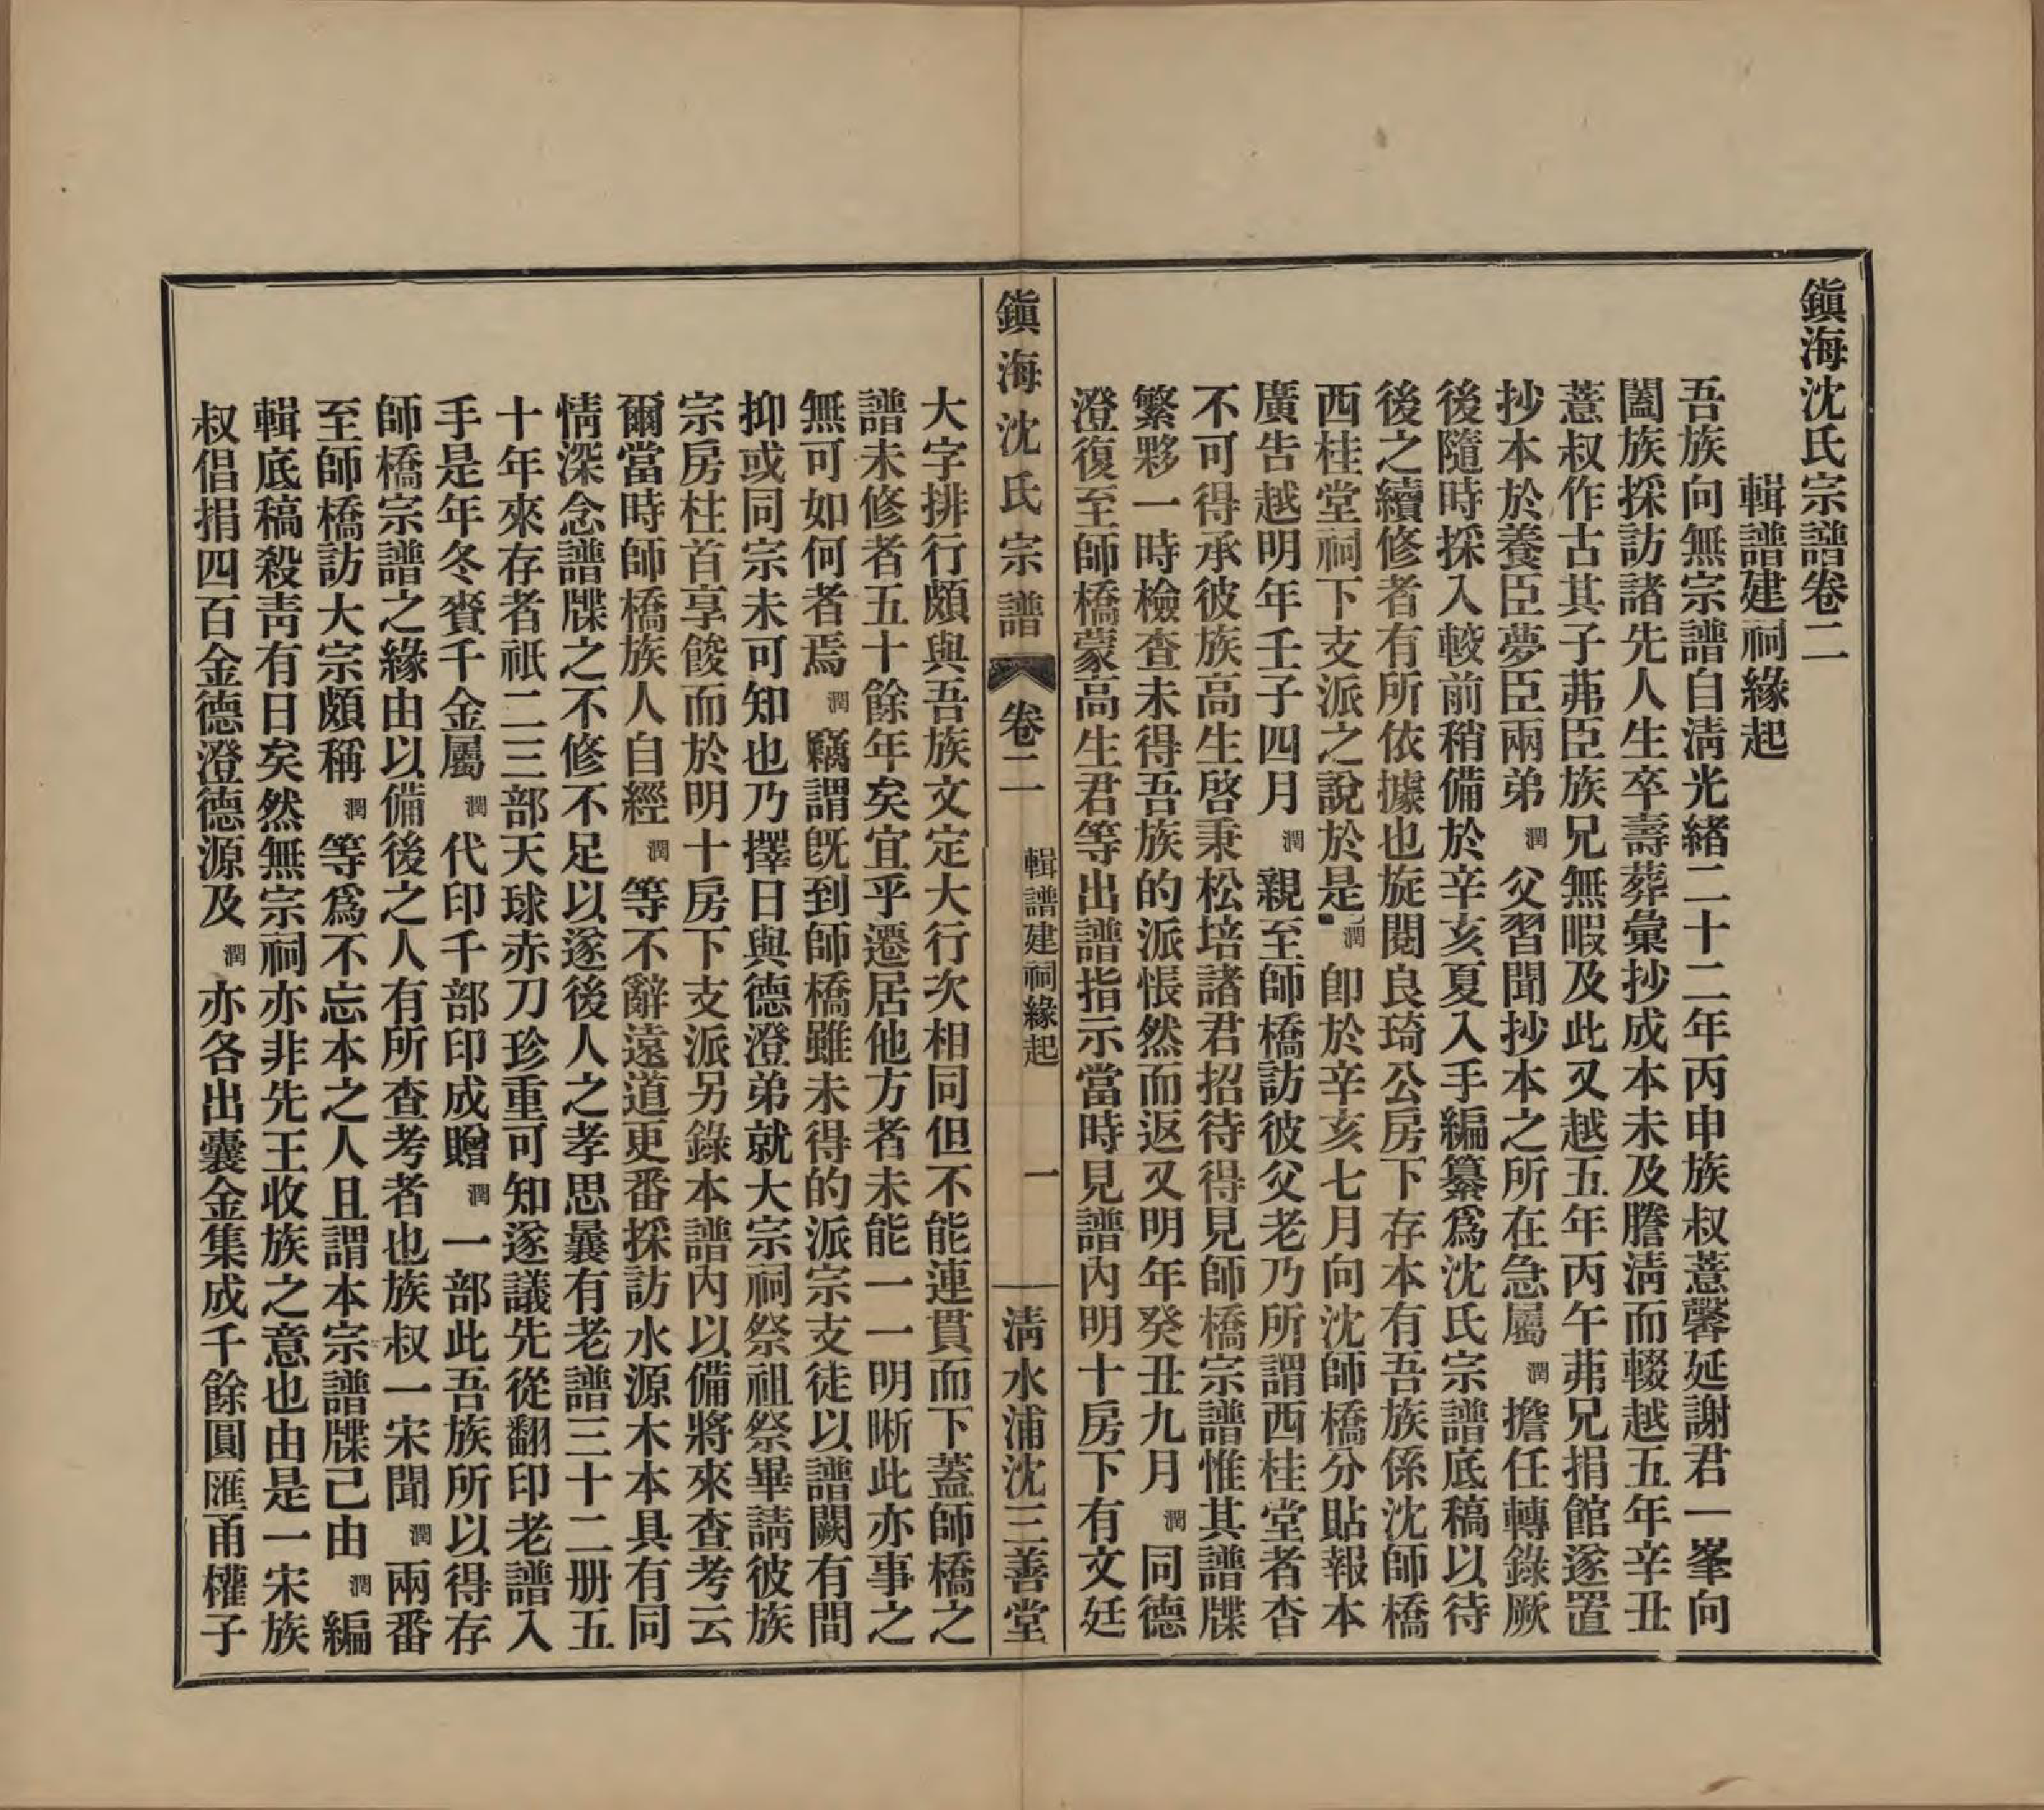 鎭海沈氏宗譜卷二
輯譜建祠緣起
吾族向無宗譜自淸光緒二十二年丙申族叔薏馨延謝君一峯向
闔族採訪諸先人生卒壽葬彙抄成本未及謄淸而輟越五年辛丑
薏叔作古其子茀臣族兄無暇及此又越五年丙午茀兄捐館遂置
抄本於養臣夢臣兩弟潤父習聞抄本之所在急屬潤擔任轉錄厥
後隨時採入較前稍備於辛亥夏入手編纂爲沈氏宗譜底稿以待
後之續修者有所依據也旋閱良琦公房下存本有吾族係沈師橋
西桂堂祠下支派之說於是潤卽於辛亥七月向沈師橋分貼報本
廣告越明年壬子四月潤親至師橋訪彼父老乃所謂西桂堂者杳
不可得承彼族高生啓秉松培諸君招待得見師橋宗譜惟其譜牒
繁夥一時檢查未得吾族的派悵然而返又明年癸丑九月潤同德
澄復至師橋蒙高生君等出譜指示當時見譜內明十房下有文廷
鎭海沈氏宗譜 卷二 輯譜建祠緣起 一 淸水浦沈三善堂
大字排行頗與吾族文定大行次相同但不能連貫而下蓋師橋之
譜未修者五十餘年矣宜乎遷居他方者未能一一明晰此亦事之
無可如何者焉潤竊謂旣到師橋雖未得的派宗支徒以譜闕有間
抑或同宗未可知也乃擇日與德澄弟就大宗祠祭祖祭畢請彼族
宗房柱首享餕而於明十房下支派另錄本譜內以備將來查考云
爾當時師橋族人自經潤等不辭遠道更番採訪水源木本具有同
情深念譜牒之不修不足以遂後人之孝思曩有老譜三十二册五
十年來存者祇二三部天球赤刀珍重可知遂議先從翻印老譜入
手是年冬賚千金屬潤代印千部印成贈潤一部此吾族所以得存
師橋宗譜之緣由以備後之人有所查考者也族叔一宋聞潤兩番
至師橋訪大宗頗稱潤等爲不忘本之人且謂本宗譜牒己由潤編
輯底稿殺靑有日矣然無宗祠亦非先王收族之意也由是一宋族
叔倡捐四百金德澄德源及潤亦各出囊金集成千餘圓匯甬權子